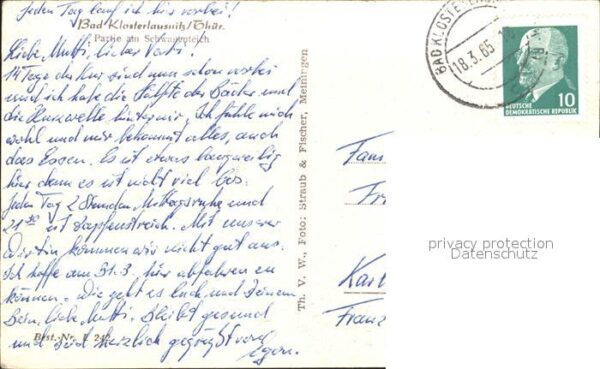 Jeden Tag lauf ich hier vorbei!
Bad Klosterlausnitz/Thür.
Partie am Schwanenteich
Liebe Mutti, lieber Vati!
14 Tage der Kur sind nun schon vorbei
und ich habe die Hälfte der Bäder und
die Kurwelle hinter mir. Ich fühle mich
wohl und mir bekommt alles, auch
das Essen. Es ist etwas langweilig
hier denn es ist nicht viel los.
Jeden Tag 2 Stunden Mittagsruhe und
21³⁰ ist Zapfenstreich. Mit unserer
Wirtin kommen wir nicht gut aus.
Ich hoffe am 31.3. hier abfahren zu
können. Wie geht es Euch und Deinem
Bein, liebe Mutti. Bleibt gesund
Best.-Nr. L 242
und seid herzlich gegrüßt von
Egon.
Th. V. W., Foto: Straub & Fischer, Meiningen
BAD KLOSTERLAUSNITZ
18.3.65
10
DEUTSCHE
DEMOKRATISCHE REPUBLIK
Fam
Fr
Karl
Franz
privacy protection
Datenschutz